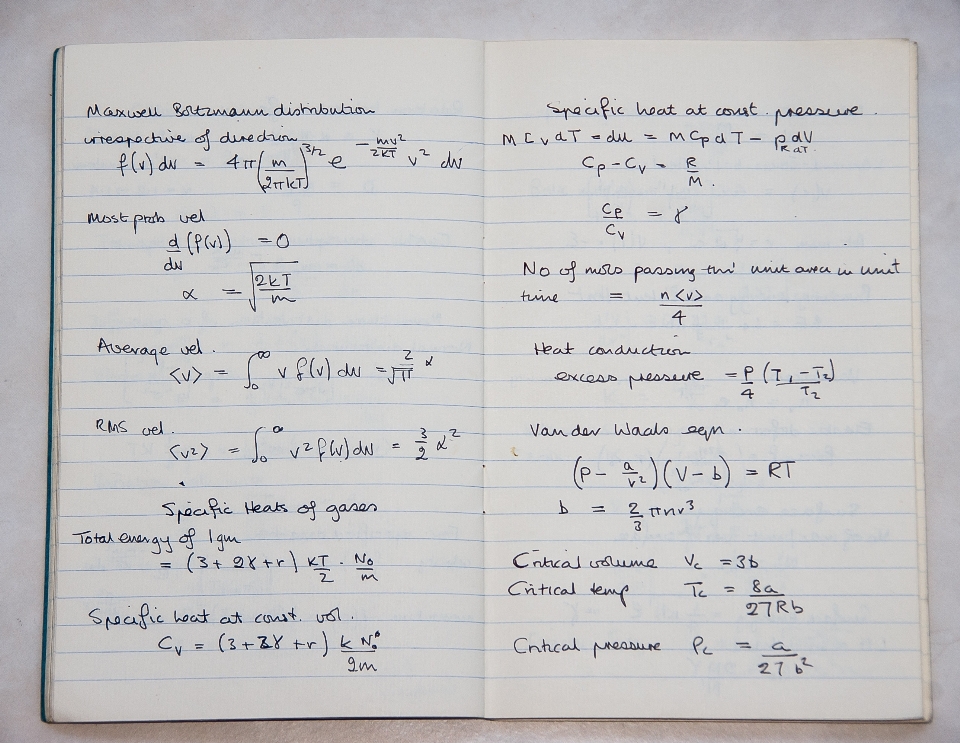 Maxwell Boltzmann distribution
irrespective of direction
f(v) dv = 4π(m/2πkT)^3/2 e^-mv²/2kT v² dv
Most prob vel
d/dv (f(v)) = 0
α = √(2kT/m)
Average vel.
<v> = ∫₀^∞ v f(v) dv = 2/√π α
RMS vel.
<v²> = ∫₀^∞ v² f(v) dv = 3/2 α²
Specific Heats of gases
Total energy of 1gm
= (3 + 2γ + r) kT/2 . N₀/m
Specific heat at const. vol.
Cv = (3 + 2γ + r) k N₀/2m
Specific heat at const. pressure.
M Cv dT = du = M Cp dT - p dV
Cp - Cv = R/M.
Cp/Cv = γ
No of mols passing thro' unit area in unit
time = n<v>/4
Heat conduction
excess pressure = P/4 (T₁ - T₂)/T₂
Van der Waals eqn.
(P - a/v²)(V - b) = RT
b = 2/3 πnr³
Critical volume Vc = 3b
Critical temp Tc = 8a/27Rb
Critical pressure Pc = a/27b²